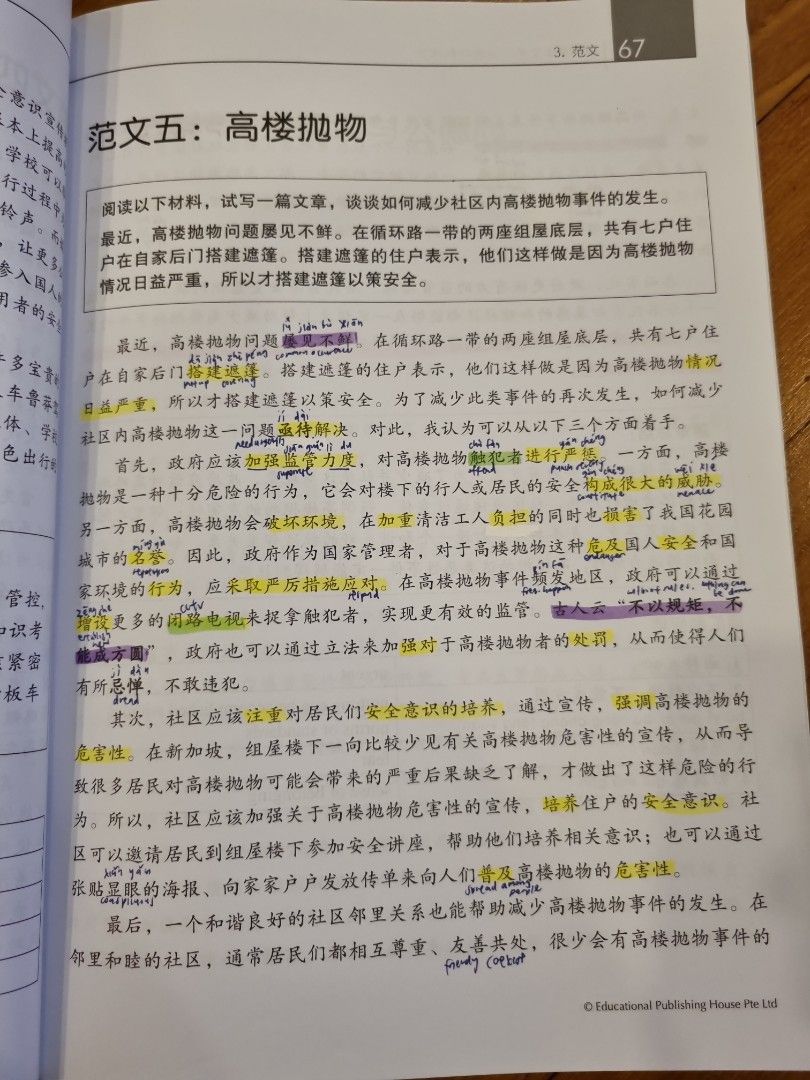 3. 范文 67
范文五：高楼抛物
阅读以下材料，试写一篇文章，谈谈如何减少社区内高楼抛物事件的发生。
最近，高楼抛物问题屡见不鲜。在循环路一带的两座组屋底层，共有七户住
户在自家后门搭建遮篷。搭建遮篷的住户表示，他们这样做是因为高楼抛物
情况日益严重，所以才搭建遮篷以策安全。
lǚ jiàn bù xiān
最近，高楼抛物问题屡见不鲜。在循环路一带的两座组屋底层，共有七户住
dā jiàn zhē péng common occurence
户在自家后门搭建遮篷。搭建遮篷的住户表示，他们这样做是因为高楼抛物情况
日益严重，所以才搭建遮篷以策安全。为了减少此类事件的再次发生，如何减少
jí dài
社区内高楼抛物这一问题亟待解决。对此，我认为可以从以下三个方面着手。
chù fàn yán chéng
首先，政府应该加强监管力度，对高楼抛物触犯者进行严惩。一方面，高楼
offend
wēi xié
抛物是一种十分危险的行为，它会对楼下的行人或居民的安全构成很大的威胁。
constitute menace
另一方面，高楼抛物会破坏环境，在加重清洁工人负担的同时也损害了我国花园
míng yù
城市的名誉。因此，政府作为国家管理者，对于高楼抛物这种危及国人安全和国
reputation endanger
pín fā
家环境的行为，应采取严厉措施应对。在高楼抛物事件频发地区，政府可以通过
zēng shè CCTV respond
增设更多的闭路电视来捉拿触犯者，实现更有效的监管。古人云“不以规矩，不
能成方圆”，政府也可以通过立法来加强对于高楼抛物者的处罚，从而使得人们
jì dàn
有所忌惮，不敢违犯。
dread
其次，社区应该注重对居民们安全意识的培养，通过宣传，强调高楼抛物的
危害性。在新加坡，组屋楼下一向比较少见有关高楼抛物危害性的宣传，从而导
致很多居民对高楼抛物可能会带来的严重后果缺乏了解，才做出了这样危险的行
为。所以，社区应该加强关于高楼抛物危害性的宣传，培养住户的安全意识。社
区可以邀请居民到组屋楼下参加安全讲座，帮助他们培养相关意识；也可以通过
xiǎn yǎn
张贴显眼的海报、向家家户户发放传单来向人们普及高楼抛物的危害性。
conspicuous spread among people
最后，一个和谐良好的社区邻里关系也能帮助减少高楼抛物事件的发生。在
邻里和睦的社区，通常居民们都相互尊重、友善共处，很少会有高楼抛物事件的
© Educational Publishing House Pte Ltd